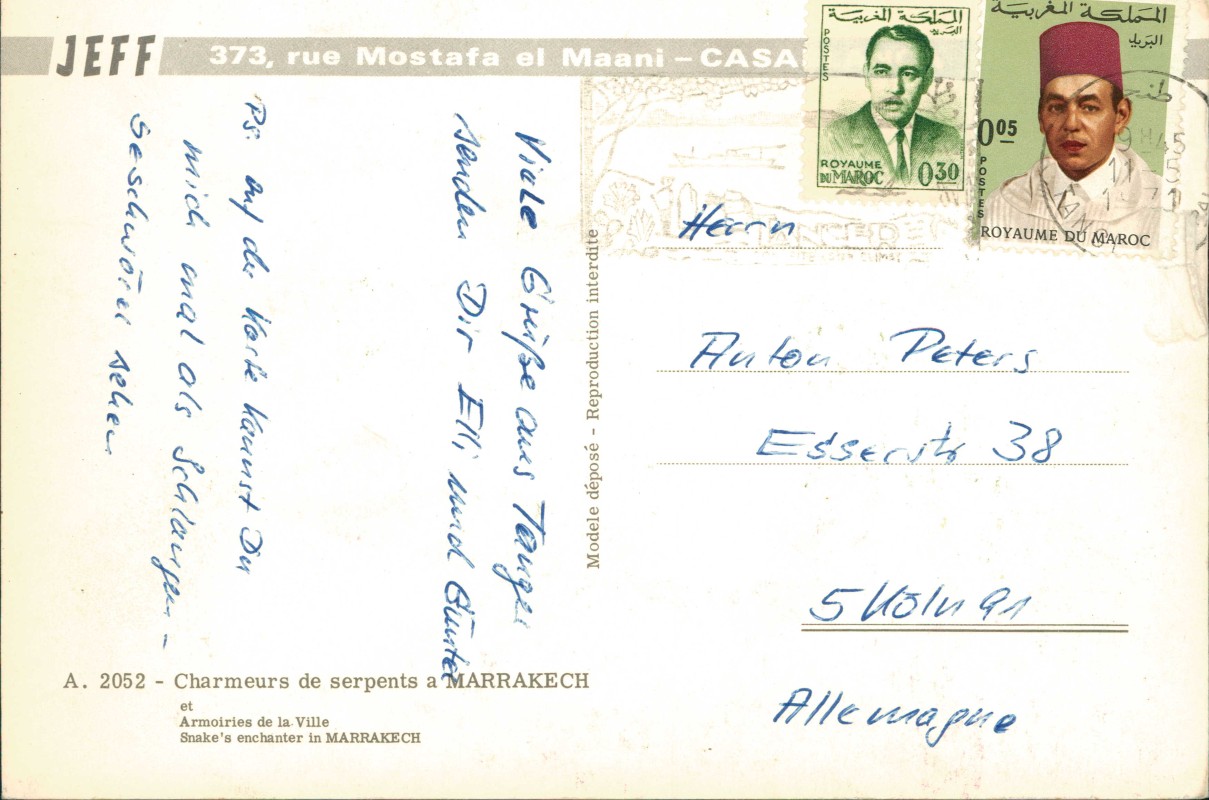 JEFF 373, rue Mostafa el Maani – CASA
المملكة المغربية
البريد
POSTES
ROYAUME
DU MAROC 0.30
المملكة المغربية
البريد
0.05
POSTES
ROYAUME DU MAROC
طنجة
9H45
11 5
Viele Grüße aus Tanger
senden Dir Elli und Günter
Ps: auf der Karte kannst Du
mich mal als Schlangen-
beschwörer sehen
Modele déposé - Reproduction interdite
Herrn
Anton Peters
Esserstr 38
5 Köln 91
Allemagne
A. 2052 - Charmeurs de serpents a MARRAKECH
et
Armoiries de la Ville
Snake's enchanter in MARRAKECH